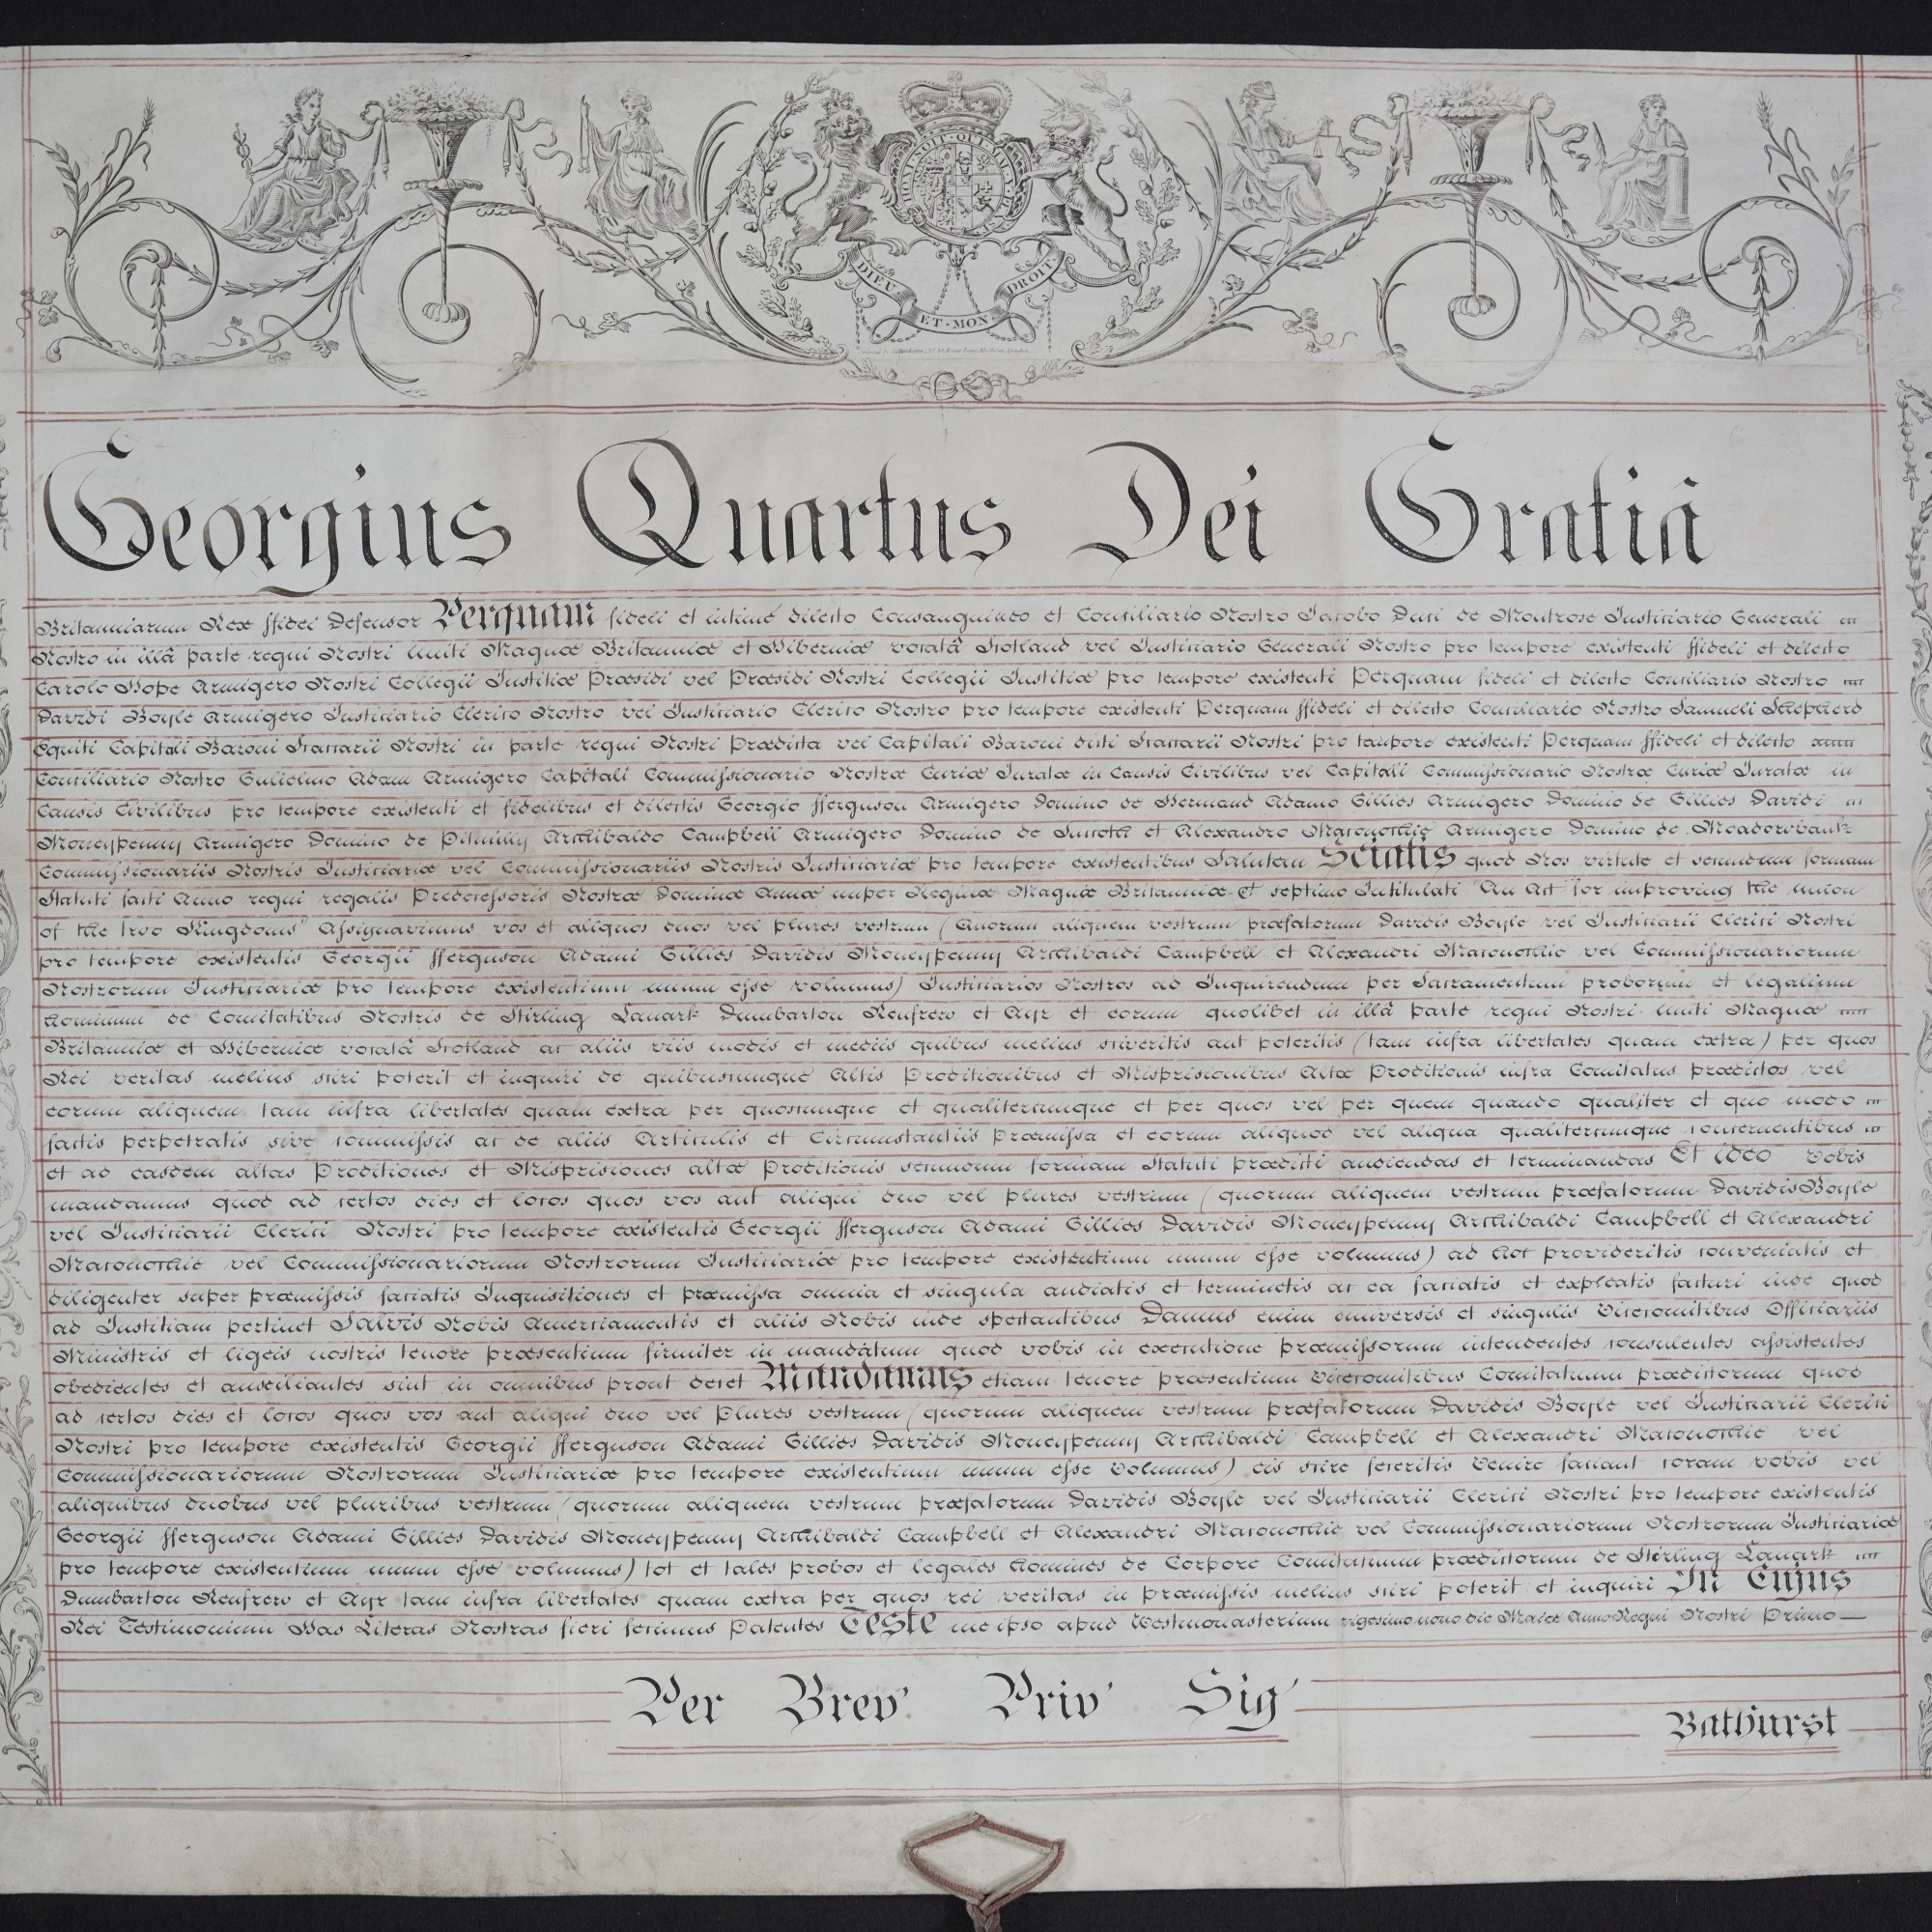 HONI·SOIT·QUI·MAL·Y·
DIEU ET·MON· DROIT·
Georgius Quartus Dei Gratiâ
Britanniarum Rex ffidei Defensor Perquam fideli et intimé dilecto Consanguineo et Consiliario Nostro Jacobo Duci de Montrose Justiciario Generali
Nostro in illâ parte regni Nostri Uniti Magnæ Britanniæ et Hiberniæ vocatâ Scotland vel Justiciario Generali Nostro pro tempore existenti ffideli et dilecto
Carolo Hope Armigero Nostri Collegii Justitiæ Præsidi vel Præsidi Nostri Collegii Justitiæ pro tempore existenti Perquam fideli et dilecto Consiliario Nostro
Davidi Boyle Armigero Justiciario Clerico Nostro vel Justiciario Clerico Nostro pro tempore existenti Perquam ffideli et dilecto Consiliario Nostro Samueli Shepherd
Equiti Capitali Baroni Scaccarii Nostri in parte regni Nostri Prædicta vel Capitali Baroni dicti Scaccarii Nostri pro tempore existenti Perquam ffideli et dilecto
Consiliario Nostro Gulielmo Adam Armigero Capitali Commissionario Nostræ Curiæ Juratæ in Causis Civilibus vel Capitali Commissionario Nostræ Curiæ Juratæ in
Causis Civilibus pro tempore existenti et fidelibus et dilectis Georgio fferguson Armigero Domino de Hermand Adamo Gillies Armigero Domino de Gillies Davidi
Moneypenny Armigero Domino de Pitmilly Archibaldo Campbell Armigero Domino de Succoth et Alexandro Maconochie Armigero Domino de Meadowbank
Commissionariis Nostris Justiciariæ vel Commissionariis Nostris Justiciariæ pro tempore existentibus Salutem Sciatis quod Nos virtute et secundum formam
Statuti facti Anno regni regalis Predecessoris Nostræ Dominæ Annæ nuper Reginæ Magnæ Britanniæ et septimo Intitulati "An Act for improving the Union
of the two Kingdoms" Assignavimus vos et aliquos duos vel plures vestrum (Quorum aliquem vestrum præfatorum Davidis Boyle vel Justiciarii Clerici Nostri
pro tempore existentis Georgii fferguson Adami Gillies Davidis Moneypenny Archibaldi Campbell et Alexandri Maconochie vel Commissionariorum
Nostrorum Justiciariæ pro tempore existentium unum esse volumus) Justiciarios Nostros ad Inquirendum per Sacramentum proborum et legalium
hominum de Comitatibus Nostris de Stirling Lanark Dumbarton Renfrew et Ayr et eorum quolibet in illâ parte regni Nostri Uniti Magnæ
Britanniæ et Hiberniæ vocatâ Scotland ac aliis viis modis et mediis quibus melius sciveritis aut poteritis (tam infra libertates quam extra) per quos
Rei veritas melius sciri poterit et inquiri de quibuscunque Altis Proditionibus et Misprisionibus Altæ Proditionis infra Comitatus prædictos vel
eorum aliquem tam infra libertates quam extra per quoscunque et qualitercunque et per quos vel per quem quando qualiter et quo modo
factis perpetratis sive commissis ac de aliis Articulis et Circumstantiis Præmissa et eorum aliquod vel aliqua qualitercunque concernentibus
et ad easdem altas Proditiones et Misprisiones altæ Proditionis secundum formam Statuti prædicti audiendas et terminandas Et ideo vobis
mandamus quod ad certos dies et locos quos vos aut aliqui duo vel plures vestrum (quorum aliquem vestrum præfatorum Davidis Boyle
vel Justiciarii Clerici Nostri pro tempore existentis Georgii fferguson Adami Gillies Davidis Moneypenny Archibaldi Campbell et Alexandri
Maconochie vel Commissionariorum Nostrorum Justiciariæ pro tempore existentium unum esse volumus) ad hoc provideritis conveniatis et
diligenter super præmissis faciatis Inquisitiones et præmissa omnia et singula audiatis et terminetis ac ea faciatis et expleatis facturi inde quod
ad Justitiam pertinet Salvis Nobis Amerciamentis et aliis Nobis inde spectantibus Damus enim universis et singulis Vicecomitibus Officiariis
Ministris et ligeis nostris tenore præsentium firmiter in mandatum quod vobis in executione præmissorum intendentes consulentes assistentes
obedientes et auxiliantes sint in omnibus prout decet Mandamus etiam tenore præsentium Vicecomitibus Comitatuum prædictorum quod
ad certos dies et locos quos vos aut aliqui duo vel plures vestrum (quorum aliquem vestrum præfatorum Davidis Boyle vel Justiciarii Clerici
Nostri pro tempore existentis Georgii fferguson Adami Gillies Davidis Moneypenny Archibaldi Campbell et Alexandri Maconochie vel
Commissionariorum Nostrorum Justiciariæ pro tempore existentium unum esse volumus) eis scire feceritis Venire faciant coram vobis vel
aliquibus duobus vel pluribus vestrum (quorum aliquem vestrum præfatorum Davidis Boyle vel Justiciarii Clerici Nostri pro tempore existentis
Georgii fferguson Adami Gillies Davidis Moneypenny Archibaldi Campbell et Alexandri Maconochie vel Commissionariorum Nostrorum Justiciariæ
pro tempore existentium unum esse volumus) tot et tales probos et legales homines de Corpore Comitatuum prædictorum de Stirling Lanark
Dumbarton Renfrew et Ayr tam infra libertates quam extra per quos rei veritas in præmissis melius sciri poterit et inquiri In Cujus
Rei Testimonium Has Literas Nostras fieri fecimus Patentes Teste me ipso apud Westmonasterium vigesimo nono die Maiæ Anno Regni Nostri Primo
Per Brev' Priv' Sig'
Bathurst